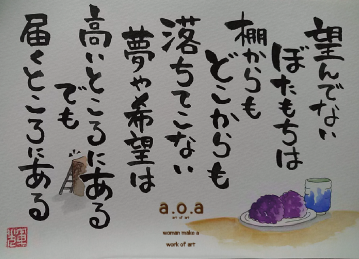 望んでない
ぼたもちは
棚からも
どこからも
落ちてこない
夢や希望は
高いところにある
でも
届くところにある
a.o.a
art of art
woman make a
work of art